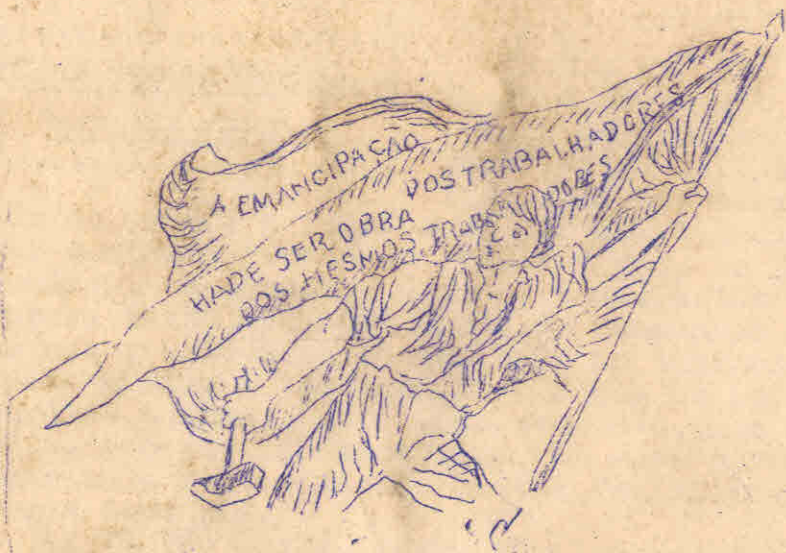 A EMANCIPAÇÃO
DOS TRABALHADORES
HADE SER OBRA
DOS MESMOS TRABA DORES